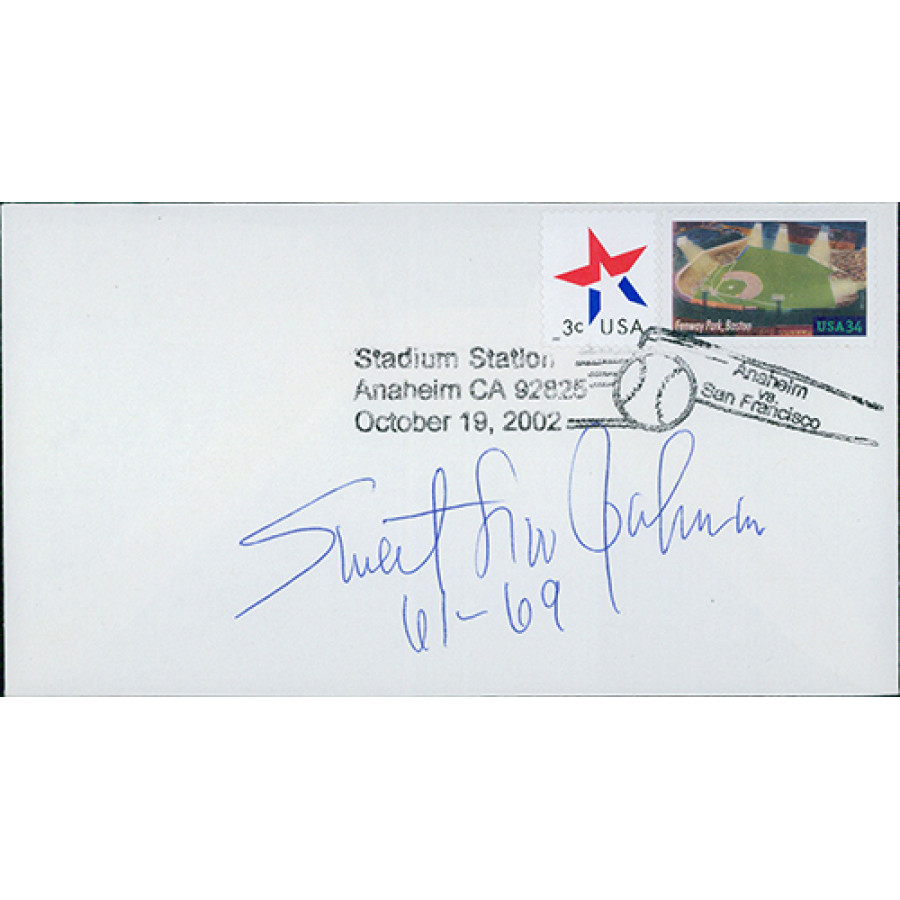 3c USA
Fenway Park, Boston USA34
Stadium Station
Anaheim CA 92825
October 19, 2002
Anaheim
vs.
San Francisco
Sweet Lou Johnson
61-69